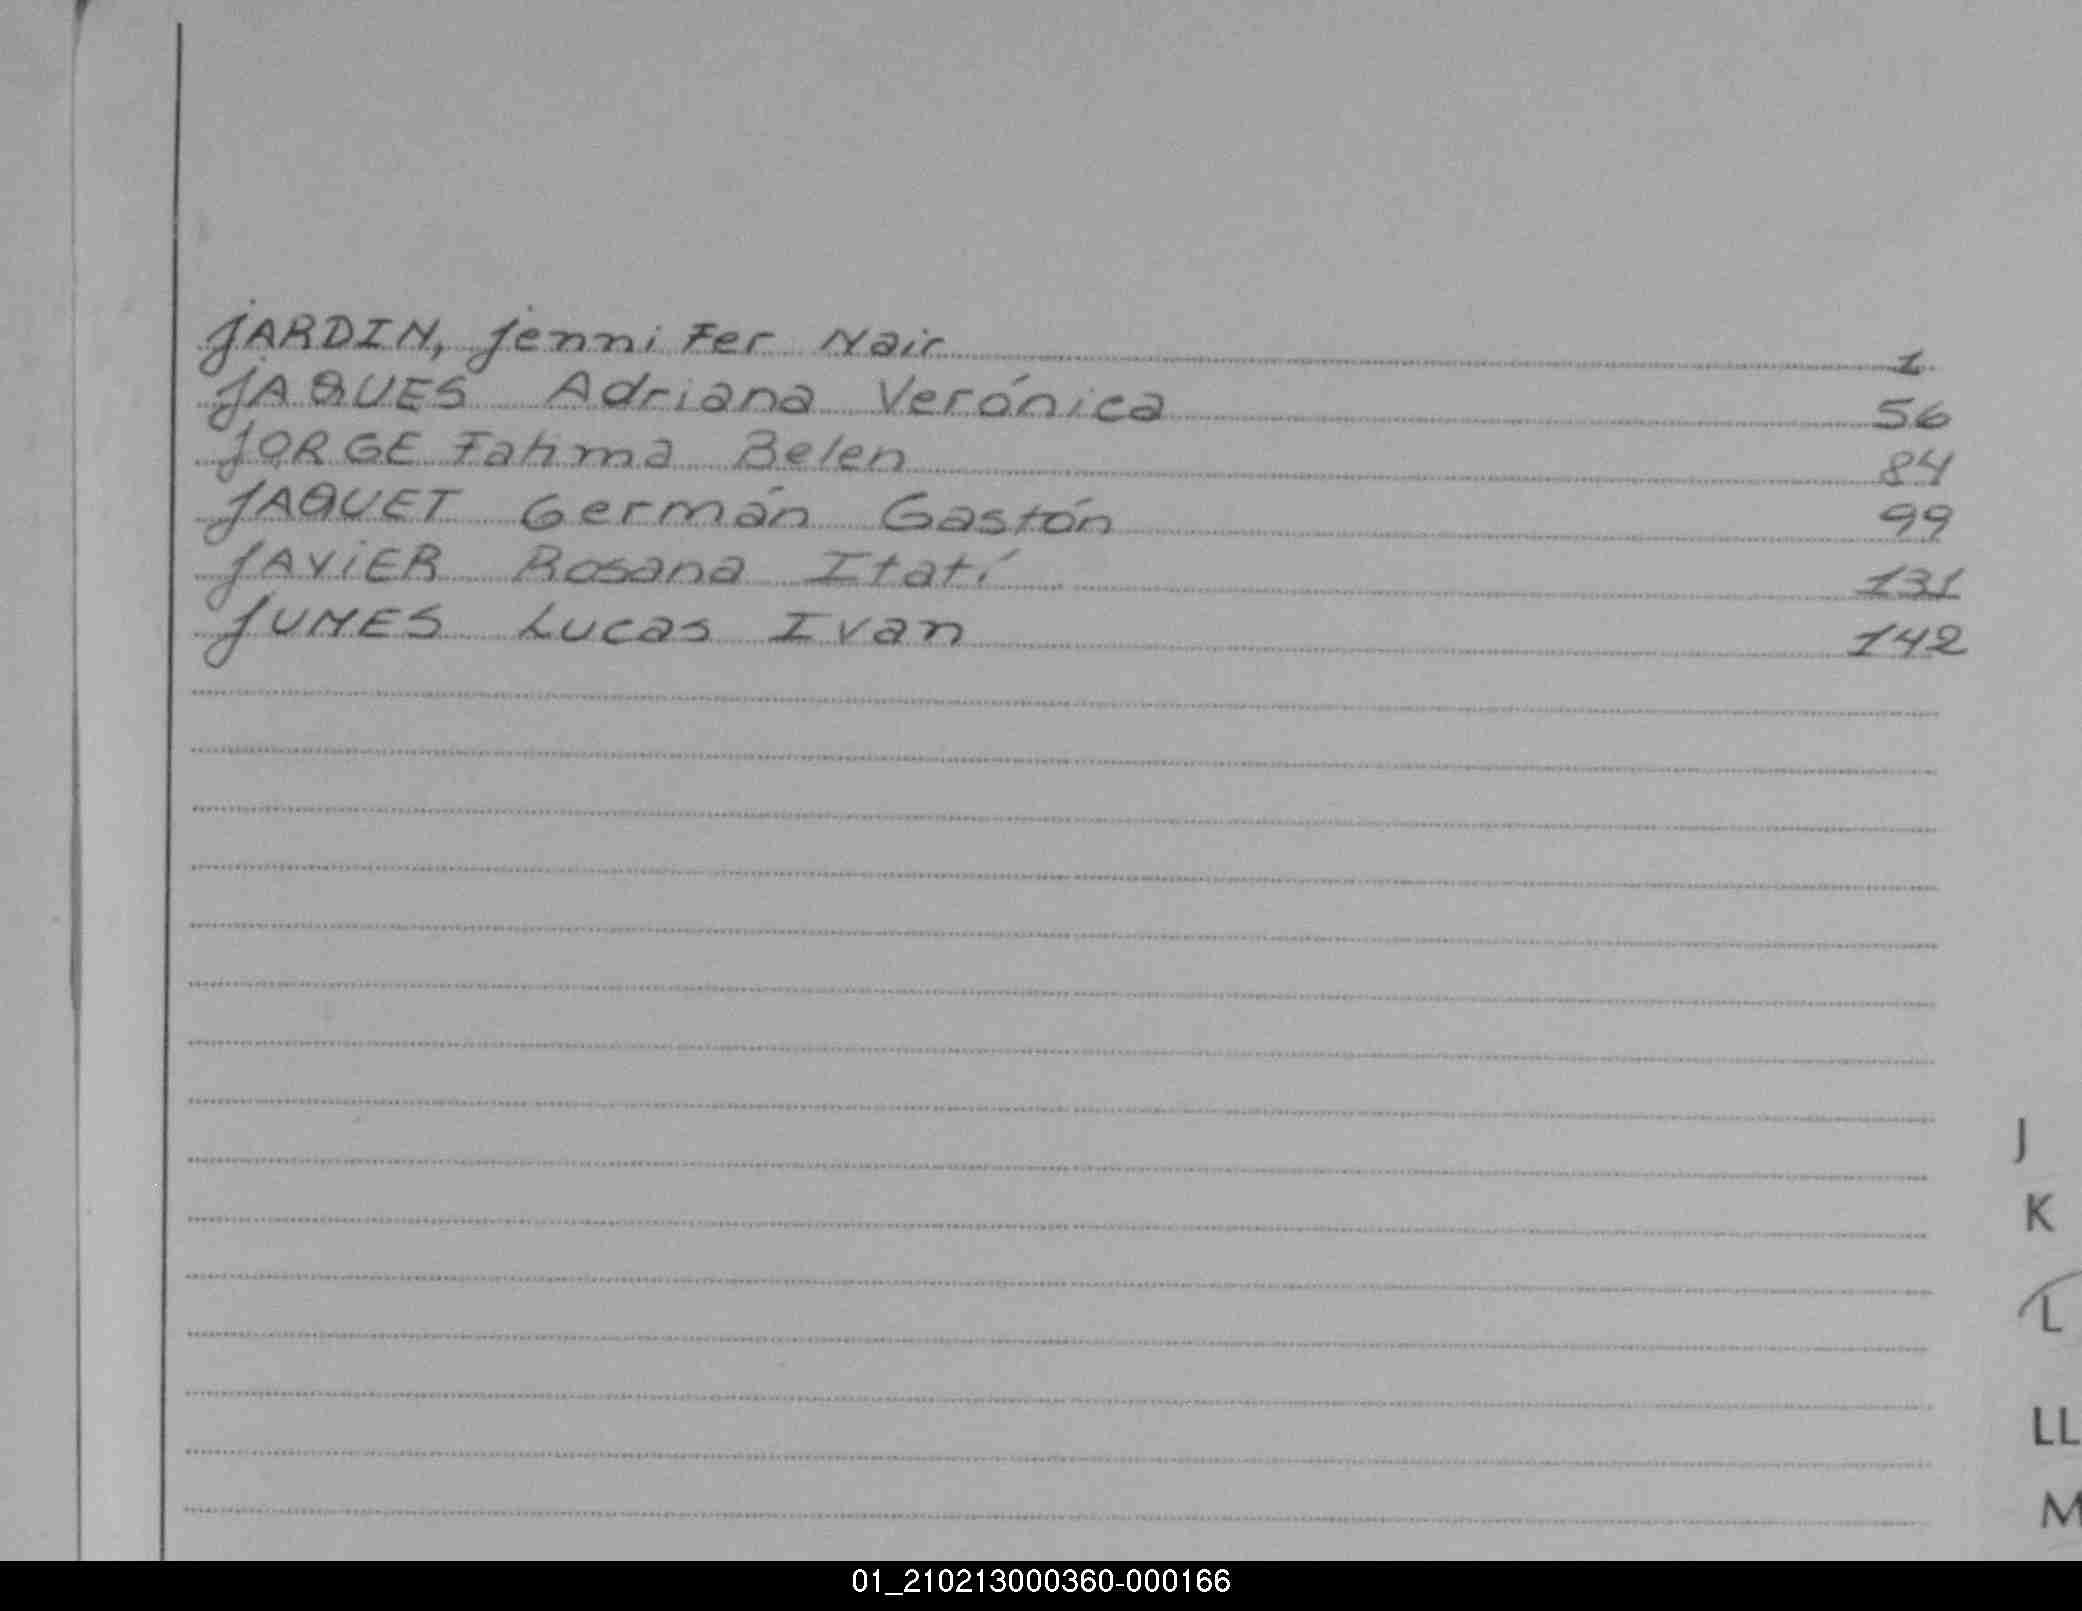 JARDIN, Jennifer Nair 1
JAQUES Adriana Verónica 56
JORGE Fatima Belen 84
JAQUET Germán Gastón 99
JAVIER Rosana Itatí 131
JUNES Lucas Ivan 142
J
K
L
LL
M
01_210213000360-000166